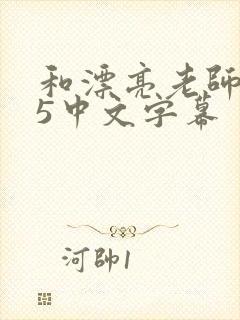 和漂亮老師
5中文字幕
河帥1